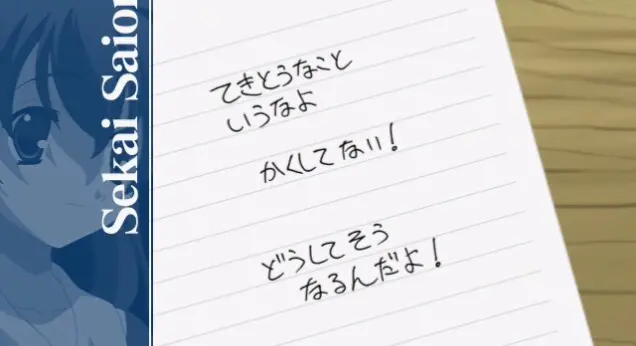 Sekai Saion
てきとうなこと
いうなよ
かくしてない！
どうしてそう
なるんだよ！